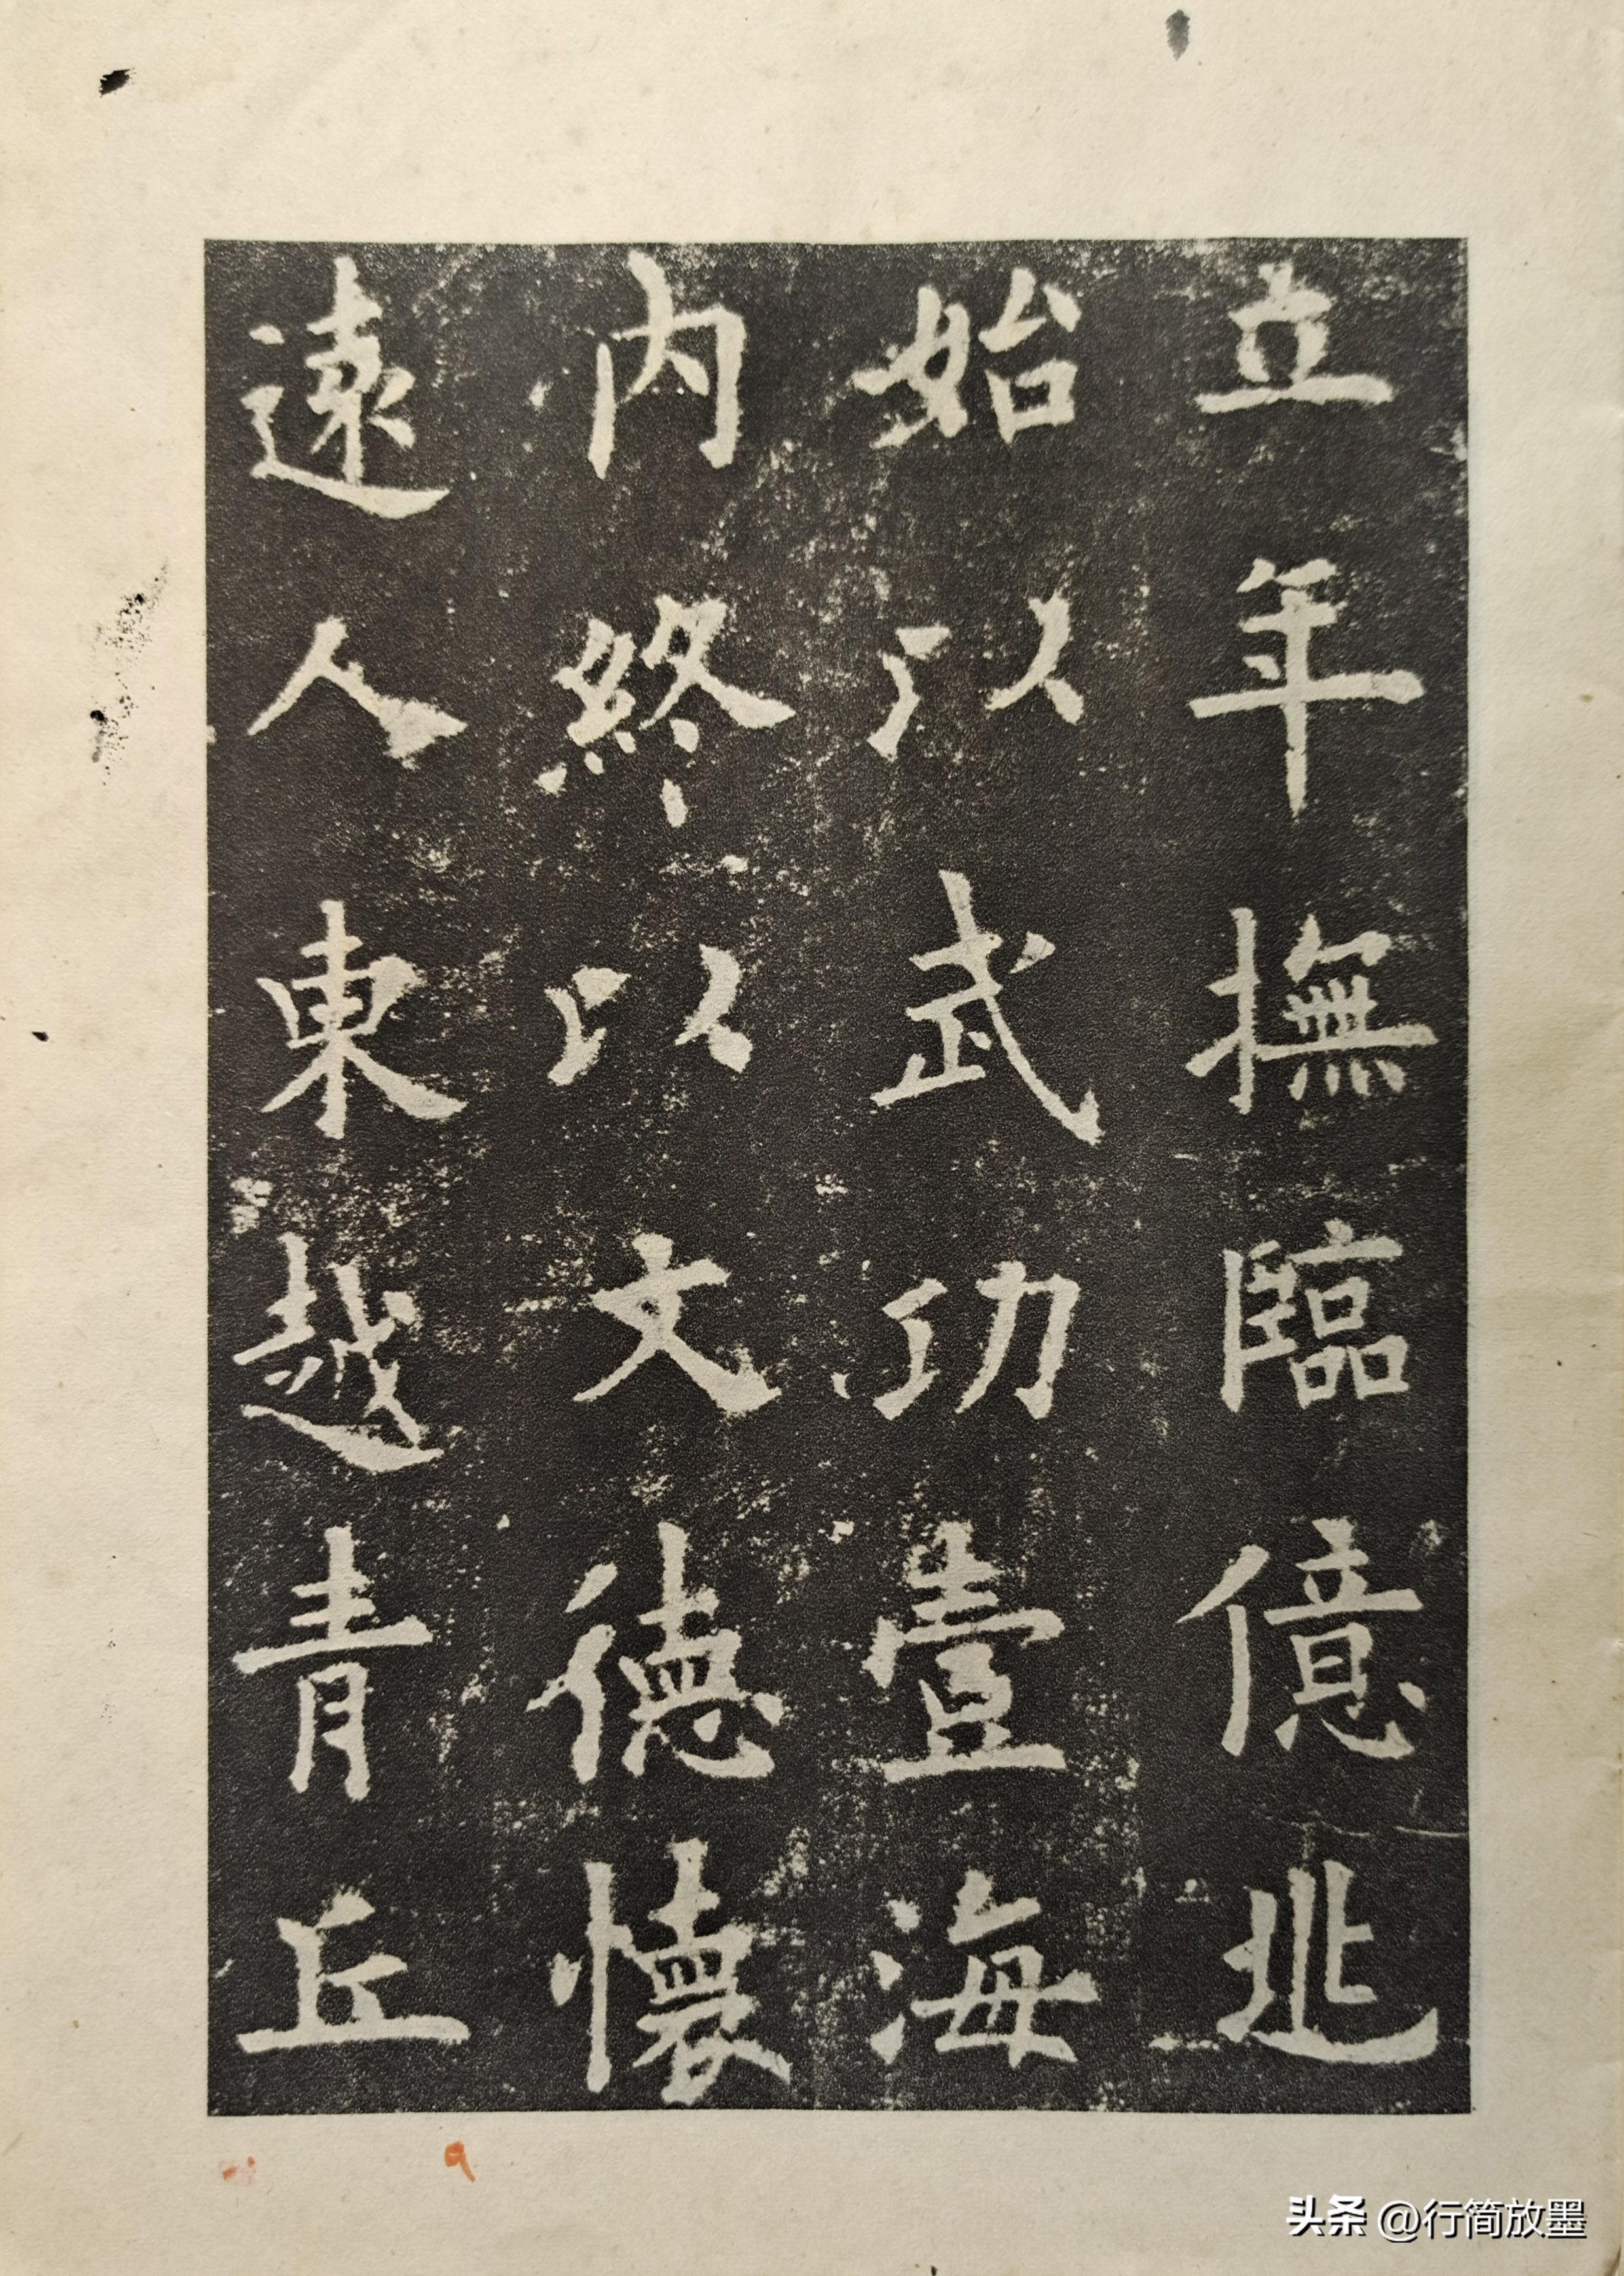 立年撫臨億兆
始以武功壹海
内終以文德懷
遠人東越青丘
頭条 @行简放墨